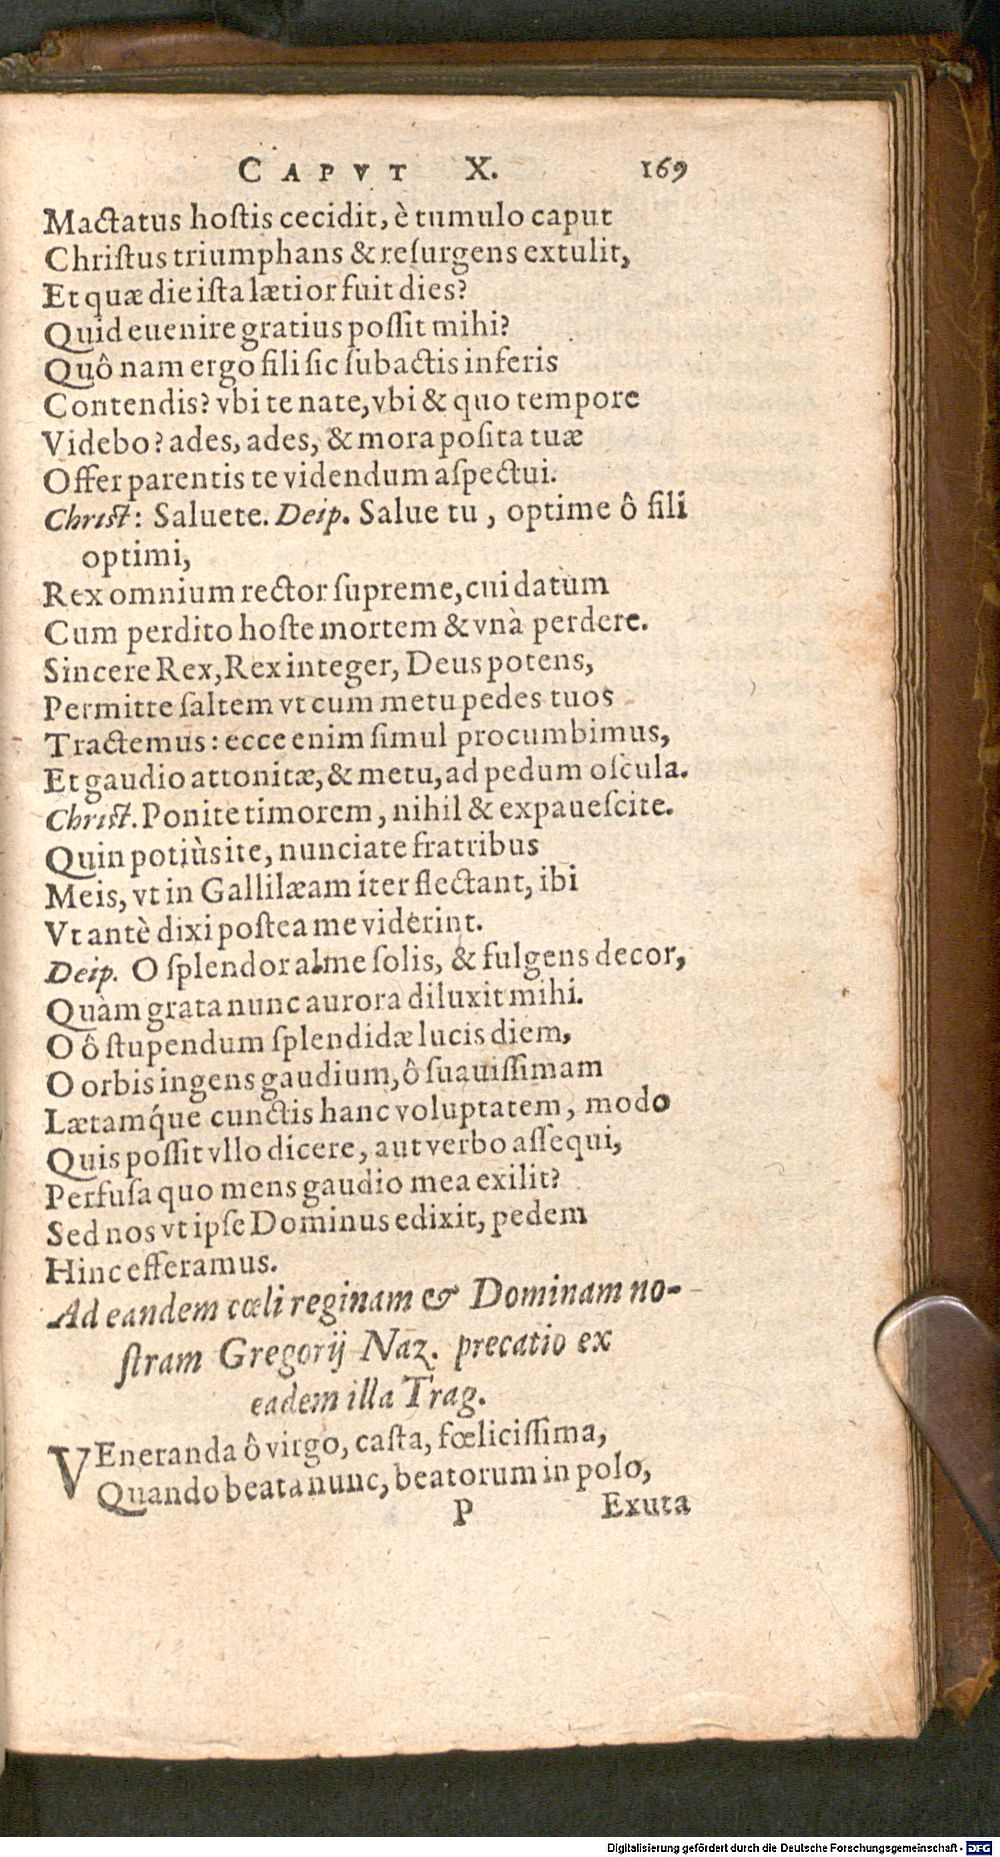 CAPVT X. 169
Mactatus hoſtis cecidit, è tumulo caput
Chriſtus triumphans & reſurgens extulit,
Et quæ die iſta lætior fuit dies?
Quid euenire gratius poſſit mihi?
Quô nam ergo fili ſic ſubactis inferis
Contendis? vbi te nate, vbi & quo tempore
Videbo? ades, ades, & mora poſita tuæ
Offer parentis te videndum aſpectui.
Chriſt: Saluete. Deip. Salue tu, optime ô fili
optimi,
Rex omnium rector ſupreme, cui datum
Cum perdito hoſte mortem & vnà perdere.
Sincere Rex, Rex integer, Deus potens,
Permitte ſaltem vt cum metu pedes tuos
Tractemus: ecce enim ſimul procumbimus,
Et gaudio attonitæ, & metu, ad pedum oſcula.
Chriſt. Ponite timorem, nihil & expaueſcite.
Quin potiùs ite, nunciate fratribus
Meis, vt in Gallilæam iter flectant, ibi
Vt antè dixi poſtea me viderint.
Deip. O ſplendor alme ſolis, & fulgens decor,
Quàm grata nunc aurora diluxit mihi.
O ô ſtupendum ſplendidæ lucis diem,
O orbis ingens gaudium, ô ſuauiſſimam
Lætamq́ue cunctis hanc voluptatem, modo
Quis poſſit vllo dicere, aut verbo aſſequi,
Perfuſa quo mens gaudio mea exilit?
Sed nos vt ipſe Dominus edixit, pedem
Hinc efferamus.
Ad eandem cœli reginam & Dominam no-
ſtram Gregorij Naz. precatio ex
eadem illa Trag.
VEneranda ô virgo, caſta, fœliciſſima,
Quando beata nunc, beatorum in polo,
P Exuta
Digitalisierung gefördert durch die Deutsche Forschungsgemeinschaft - DFG